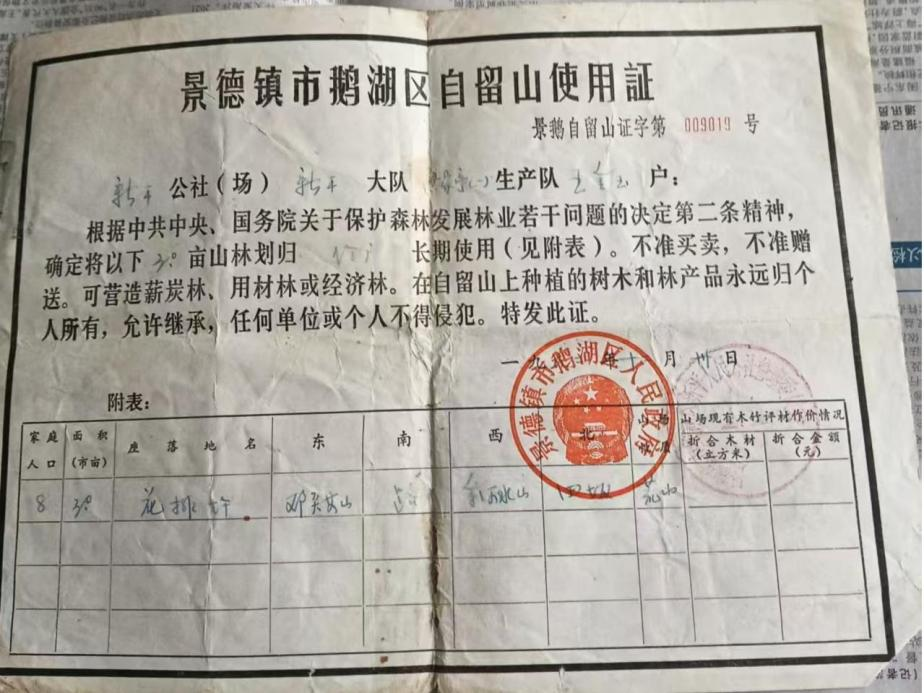 景德镇市鹅湖区自留山使用証
景鹅自留山证字第 009019 号
新平 公社(场) 新平 大队 生产队 户:
根据中共中央、国务院关于保护森林发展林业若干问题的决定第二条精神,
确定将以下 30 亩山林划归 长期使用(见附表)。不准买卖,不准赠
送。可营造薪炭林、用材林或经济林。在自留山上种植的树木和林产品永远归个
人所有,允许继承,任何单位或个人不得侵犯。特发此证。
一九 年十 月 卅 日
景德镇市鹅湖区人民政府
附表:
家庭人口 面积(市亩) 座落地名 东 南 西 北 山场现有木竹评材作价情况
折合木材(立方米) 折合金额(元)
8 30 花排 荒山